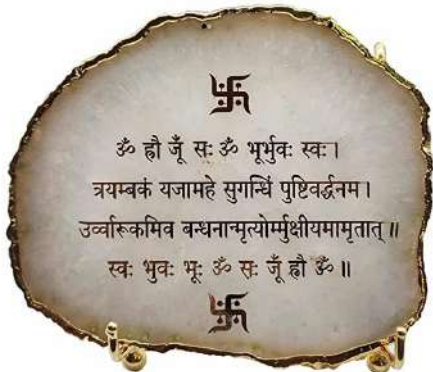 ॐ ह्रौ जूँ सः ॐ भूर्भुवः स्वः।
त्रयम्बकं यजामहे सुगन्धिं पुष्टिवर्द्धनम।
उर्व्वारूकमिव बन्धनान्मृत्योर्म्मुक्षीयमामृतात्॥
स्वः भुवः भूः ॐ सः जूँ ह्रौ ॐ॥